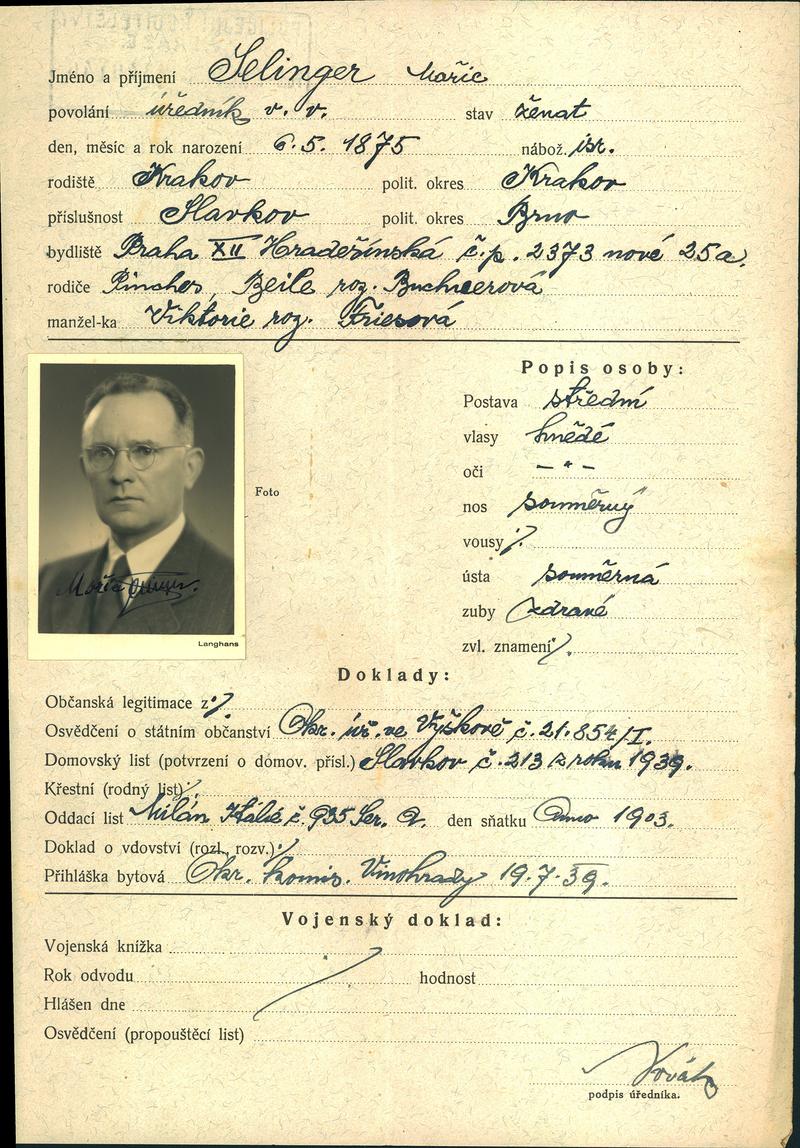 Jméno a příjmení Selinger Mořic
povolání úředník v. v. stav ženat
den, měsíc a rok narození 6. 5. 1875 nábož. isr.
rodiště Krakov polit. okres Krakov
příslušnost Slavkov polit. okres Brno
bydliště Praha XII Hradešínská č.p. 2373 nové 25a.
rodiče Pinches, Beile roz. Buchnerová
manžel-ka Viktorie roz. Friesová
Popis osoby:
Postava střední
vlasy hnědé
oči – " –
Foto
nos souměrný
vousy
ústa souměrná
zuby zdravé
Langhans
zvl. znamení
Doklady:
Občanská legitimace z:
Osvědčení o státním občanství Okr. úř. ve Vyškově č. 21.854/I.
Domovský list (potvrzení o domov. přísl.) Slavkov č. 213 z roku 1939.
Křestní (rodný list)
Oddací list Milán Itálie č. 935 Ser. A. den sňatku Anno 1903.
Doklad o vdovství (rozl., rozv.)
Přihláška bytová Okr. komis. Vinohrady 19.7.39.
Vojenský doklad:
Vojenská knížka
Rok odvodu hodnost
Hlášen dne
Osvědčení (propouštěcí list)
Novák
podpis úředníka.